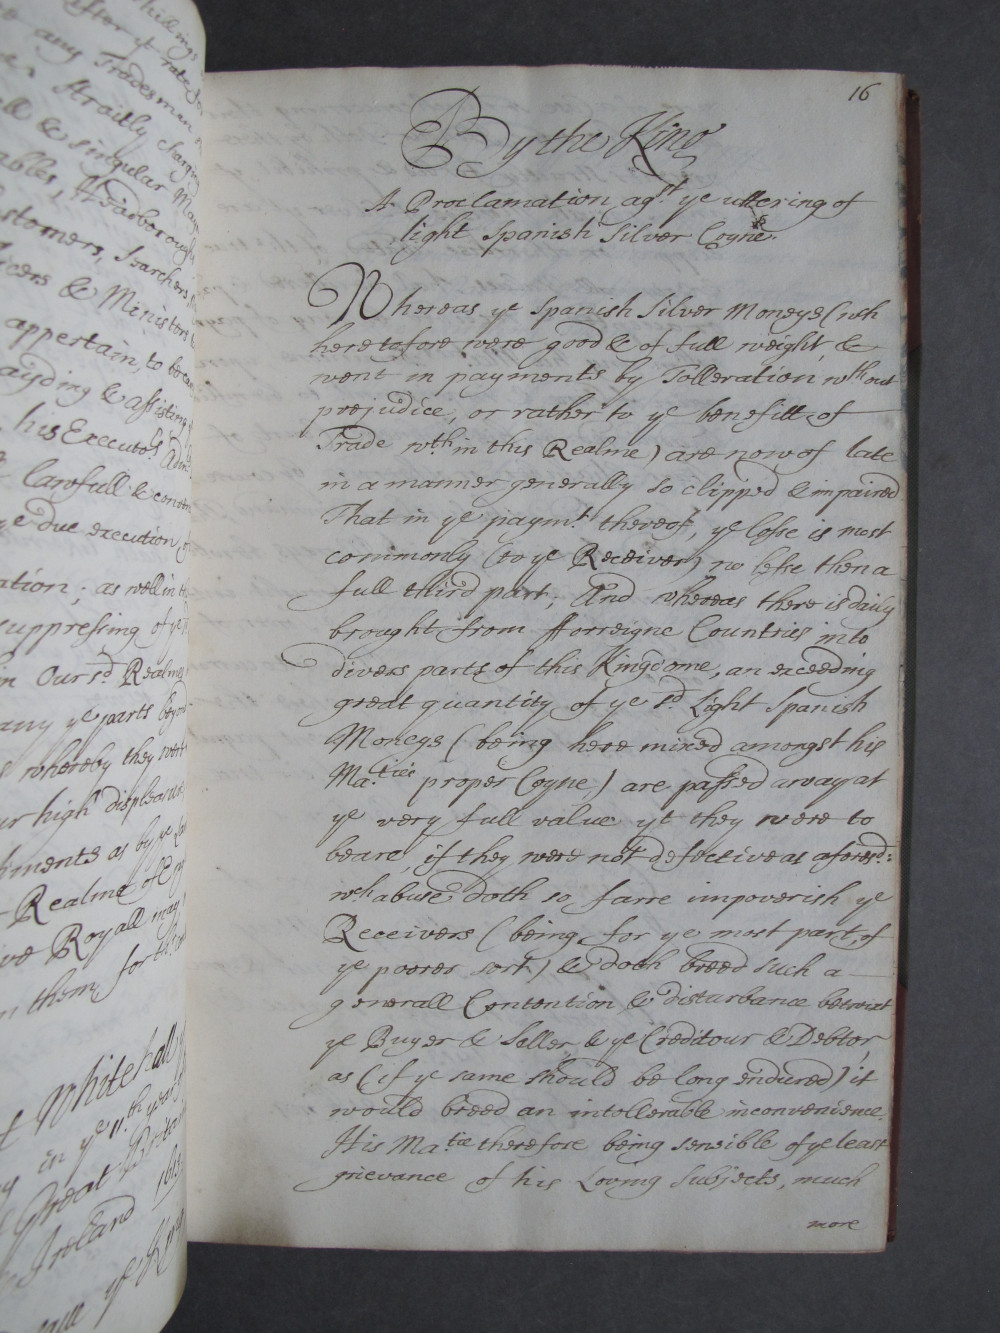 shillings
after ye rate
any Tradesman
straitly charging
all & singular
ables, Headboroughs
stomers, Searchers
icers & Ministers
appertain, to be
ayding & assisting
his Executors
Lawfull &
ye due execution
ation; as well in
suppressing of ye
in Our sd Realme
any ye parts beyond
whereby they
ur high displeasure
hments as by ye
Realme of
ive Royall may
in them. for
Whitehall
in ye 11th year
Great Britain
Ireland
ye King
16
By the King
A Proclamation agst. ye uttering of
light Spanish Silver Coyne.
Whereas ye Spanish Silver Moneys (wch
heretofore were good & of full weight, &
went in payments by Tolleration without
prejudice, or rather to ye benefitt of
Trade wth.in this Realme) are now of late
in a manner generally so clipped & impaired
That in ye paymt. thereof, ye losse is most
commonly (to ye Receiver) no lesse then a
full third part; And whereas there is daily
brought from fforreigne Countries into
divers parts of this Kingdome, an exceeding
great quantity of ye sd Light Spanish
Moneys (being here mixed amongst his
Ma.ties proper Coyne,) are passed away at
ye very full value yt they were to
beare, if they were not defective as aforesd:
wch abuse doth so farre impoverish ye
Receivers (being, for ye most part, of
ye poorer sort) & doth breed such a
generall Contention & disturbance betwixt
ye Buyer & Seller, & ye Creditour & Debtor,
as (if ye same should be long endured) it
would breed an intollerable inconvenience.
His Ma.tie therefore being sensible of ye least
grievance of his Loving Subjects, much
more